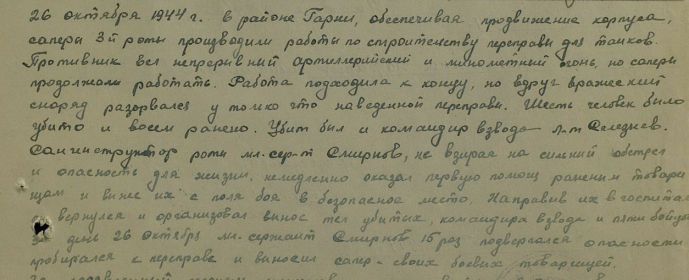 26 октября 1944 г. в районе Гарни, обеспечивая продвижение корпуса,
саперы 3й роты производили работы по строительству переправы для танков.
Противник вел непрерывный артиллерийский и минометный огонь, но саперы
продолжали работать. Работа подходила к концу, но вдруг вражеский
снаряд разорвался у только что наведенной переправы. Шесть человек было
убито и восем ранено. Убит был и командир взвода л-т Селезнев.
Санинструктор роты мл. сер-т Смирнов, не взирая на сильный обстрел
и опасность для жизни, немедленно оказал первую помощ раненым товари
щам и вынес их с поля боя в безопасное место. Направив их в госпиталь
вернулся и организовал вынос тел убитых, командира взвода и пяти бойцов
день 26 октября мл. сержант Смирнов 15 раз подвергался опасности
пробирался к переправе и выносил сапер - своих боевых товарищей.